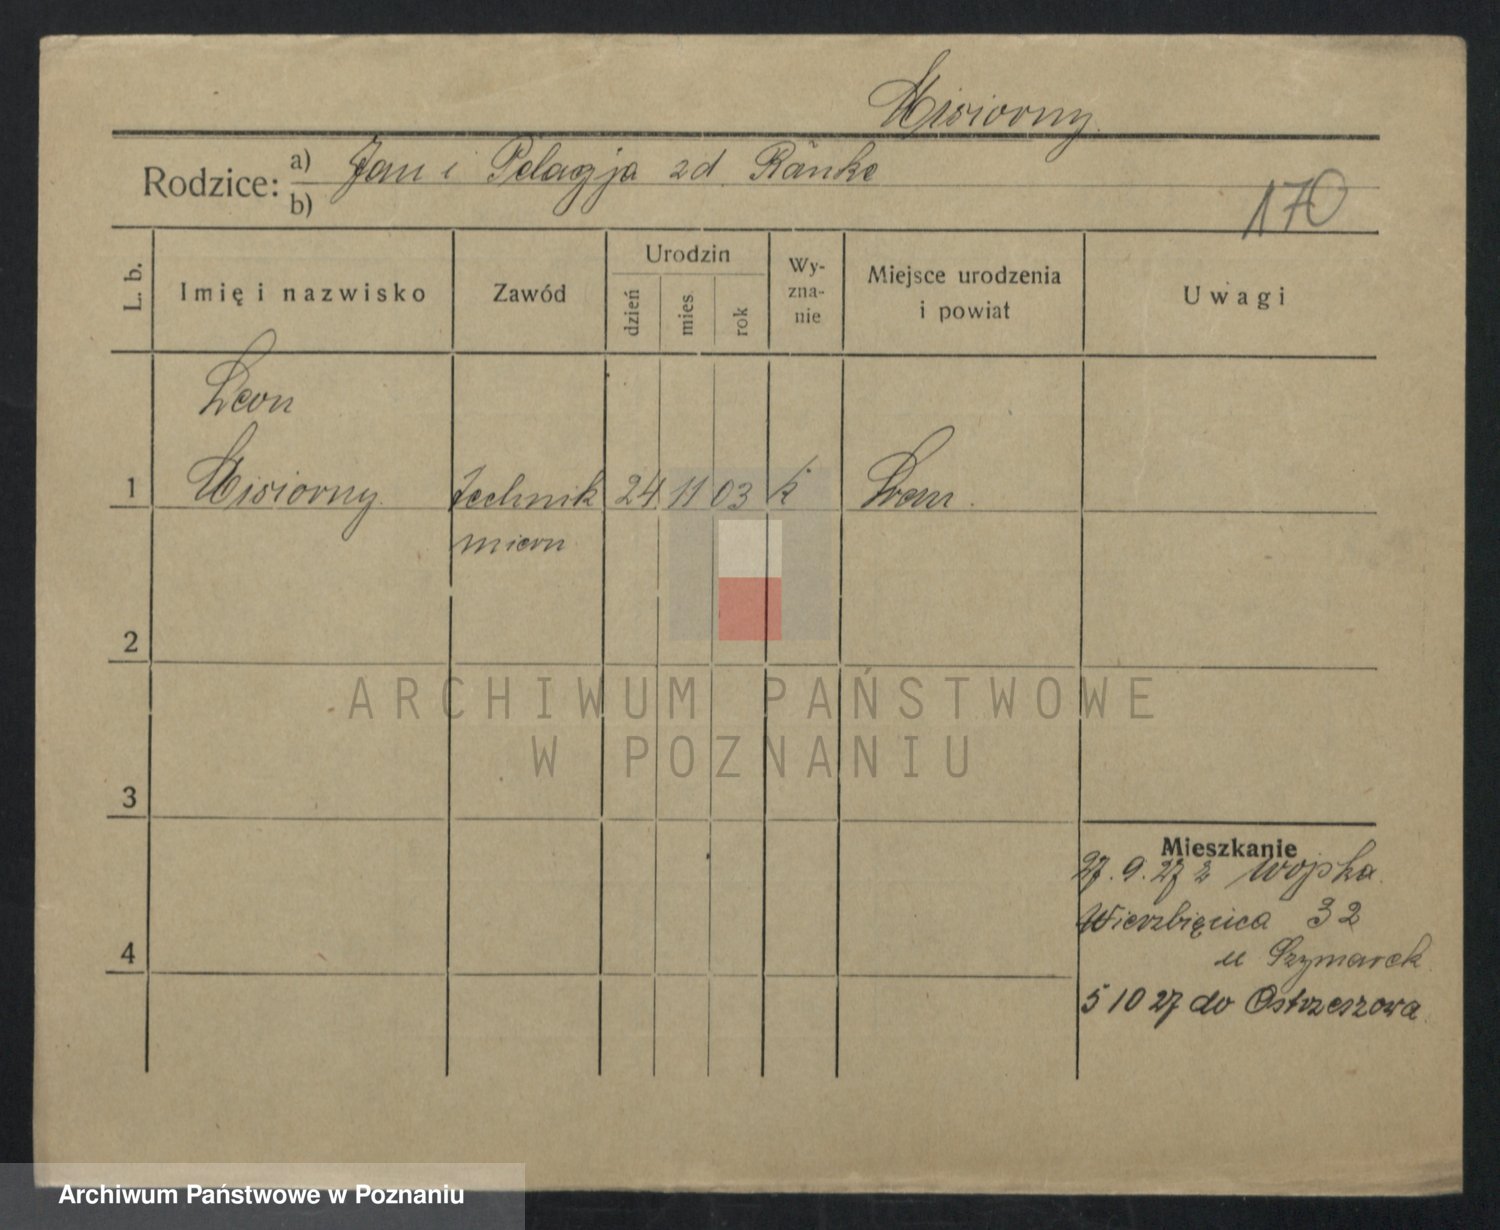 Misiorny.
Rodzice: a) Jan i Pelagja zd. Ränke
b)
170
L. b.
Imię i nazwisko
Zawód
Urodzin
dzień
mies.
rok
Wy-
zna-
nie
Miejsce urodzenia
i powiat
Uwagi
Leon
1 Misiorny. technik 24 11 03 k
miern
2
3
4
Mieszkanie
27.9.27 z wojska.
Wierzbięcica 32
u Szymarek.
5 10 27 do Ostrzeszowa.
ARCHIWUM PAŃSTWOWE
W POZNANIU
Archiwum Państwowe w Poznaniu